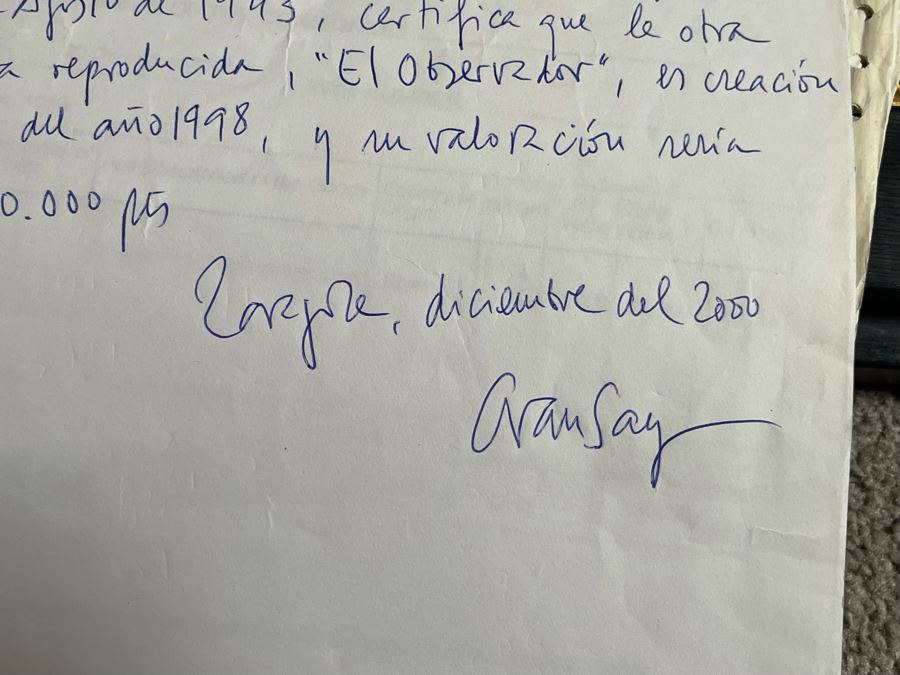 Agosto de 1943, certifica que la obra
a reproducida, "El Observador", es creación
del año 1998, y su valoración seria
0.000 pts
Zaragoza, diciembre del 2000
Aransay